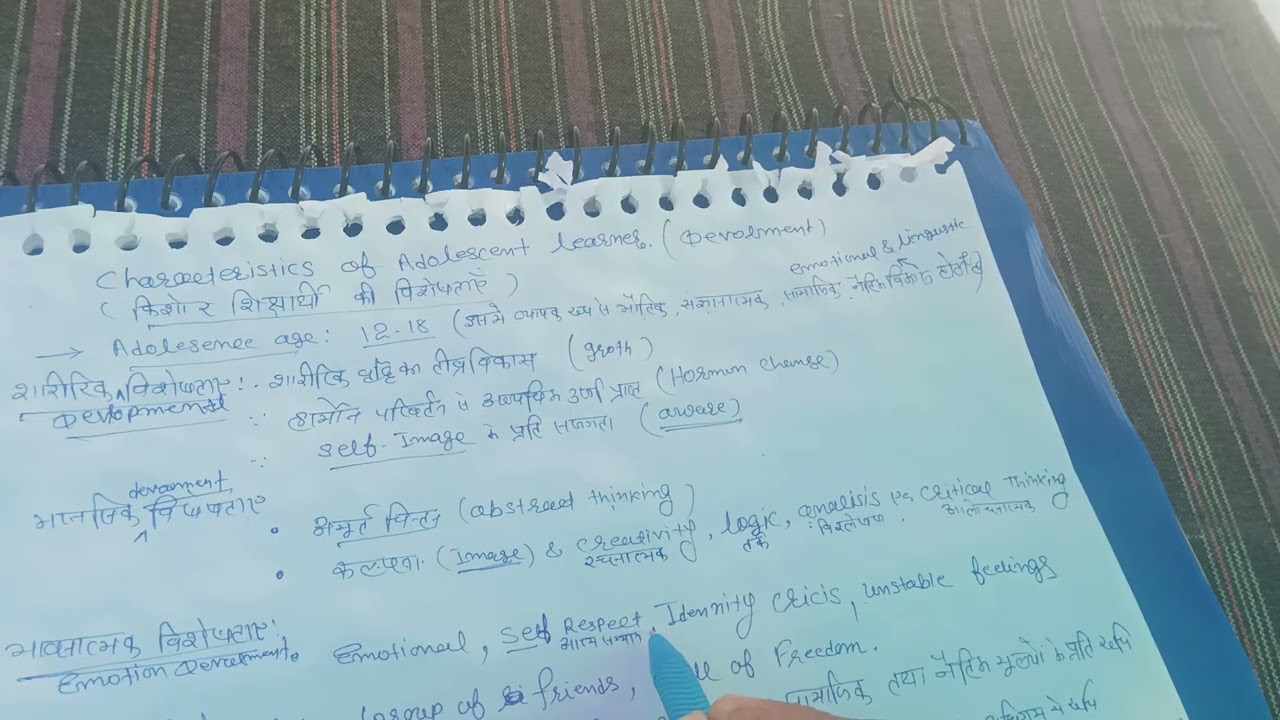 Characteristics of Adolescent learner. (Deverment)
(किशोर शिक्षार्थी की विशेषताएँ)
emotional & linguistic
→ Adolesence age: 12-18 (इसमें व्यापक रूप से भौतिक, संज्ञानात्मक, सामाजिक, नैतिक
शारीरिक विशेषताएं:. शारीरिक वृद्धि का तीव्र विकास (groth)
Devlopmental
हार्मोन परिवर्तन से अत्यधिक उर्जा प्राप्त (Hormon change)
self-Image के प्रति सजगता (aware)
deverment
मानसिक विशेषताएं
• अमूर्त चिन्तन (abstread thinking)
• कल्पना (Image) & creativity, logic, analisis एवं critical thinking
रचनात्मक तर्क विश्लेषण. आलोचनात्मक
भावनात्मक विशेषताएं:
Emotion Deverment. Emotional, self Respect, Idennity cricis, unstable feelings
आत्म सम्मान
Group of friends, of Freedom.
सामाजिक तथा नैतिक मूल्यों के प्रति रूचि